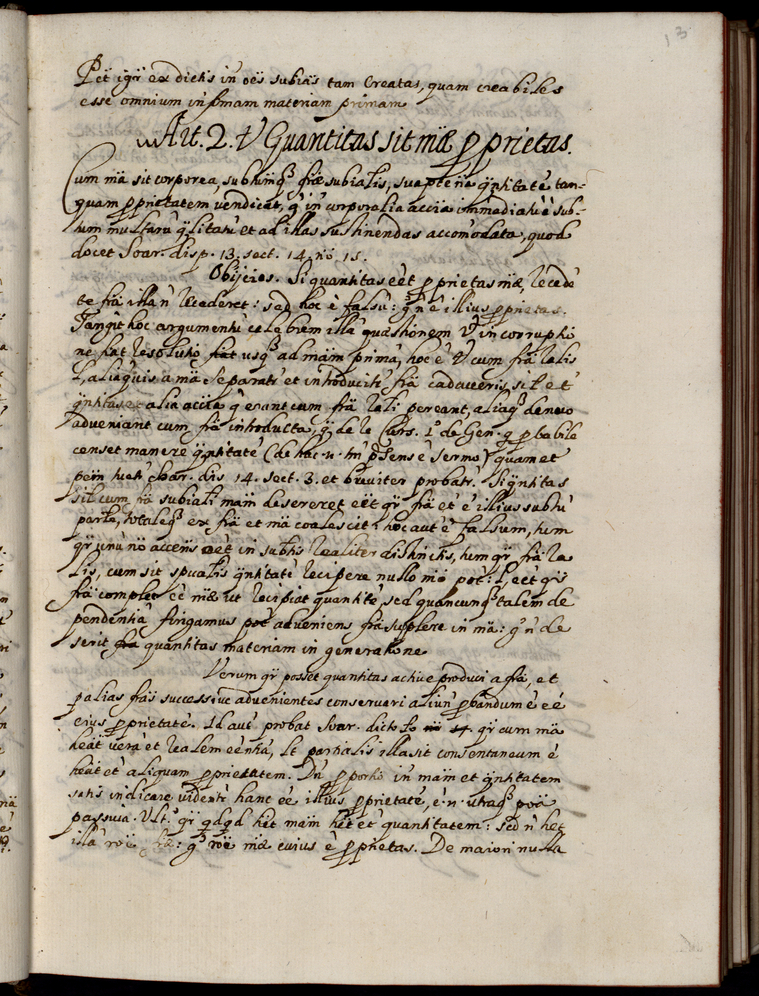 13
Pēt igr̄ ex dictis in oēs subiās tam Creatas, quam creabiles
esse omnium infimam materiam primam
Art. 2. V Quantitas sit mæ pprietas.
Cum mā sit corporea, subhinq3 fræ subialis, suapte nā qn̄titatē tan=
quam pprietatem vendicat, q̄ in corporalia accīa immediatū ē sub-
tum multarū qlitatū et ad illas sustinendas accomodata, quod
docet Soar. disp. 13. sect. 14. nō. 15.
Obijcies. Si quantitas eēt pprietas mæ, recedē
te frā illa n̄ recederet: sed hoc ē falsū: g° n̄ ē illius pprietas.
Tangit hoc argumentū celebrem illā quæstionem V in corruptio
ne fiat resolutio usq3 ad mām primā, hoc ē V cum frā talis
l, aliaquis a mā separatr et introducitr frā cadaveris, sil et
qn̄titas et alia accīa q̄ erant cum frā tali pereant, aliaq3 denuo
adveniant cum frā introducta, q̄ de re Curs. 1° de Gen. q. pbabile
censet manere qn̄titatē (de hac n. tm̄ p̄sens ē sermo) quam et
Soar. dis 14. sect. 3. et breviter probatr. Si qn̄titas
sil cum frā subiali mām desereret eēt qr̄ frā et ē illius subtū
partle, totaleq3 ex frā et mā coalescit: hoc autē falsum, tum
qr̄ unū nō accēns eēt in subtis realiter distinctis, tum qr̄ frā ra
lis, cum sit spūalis qn̄titatē recipere nullo mō pōt: l, eēt qr̄
frā complet eē mæ ut recipiat quantitē, sed quamcunq3 talem de
pendentiā fingamus pōt adveniens frā supplere in mā: g° n̄ de
serit quantitas materiam in generatione
Verum qr̄ posset quantitas active produci a frā, et
p alias frās successive advenientes conservari aliun̄ pbandum ē eē
eius pprietatē. Id autē probat Soar. dicto qr̄ cum mā
heāt verā et realem eēntiā, lt partialis illa sit consentaneum ē
heāt et aliquam pprietatem. Dn̄ pportio in mām et qn̄titatem
satis indicare videntr hanc eē illius pprietatē, ē n. utraq3 pōā
passiva. Ult. qr̄ qdqd het mām het et quantitatem: sed n̄ het
illā rōē fræ: g° rōē mæ cuius ē pprietas. De maiori nulla